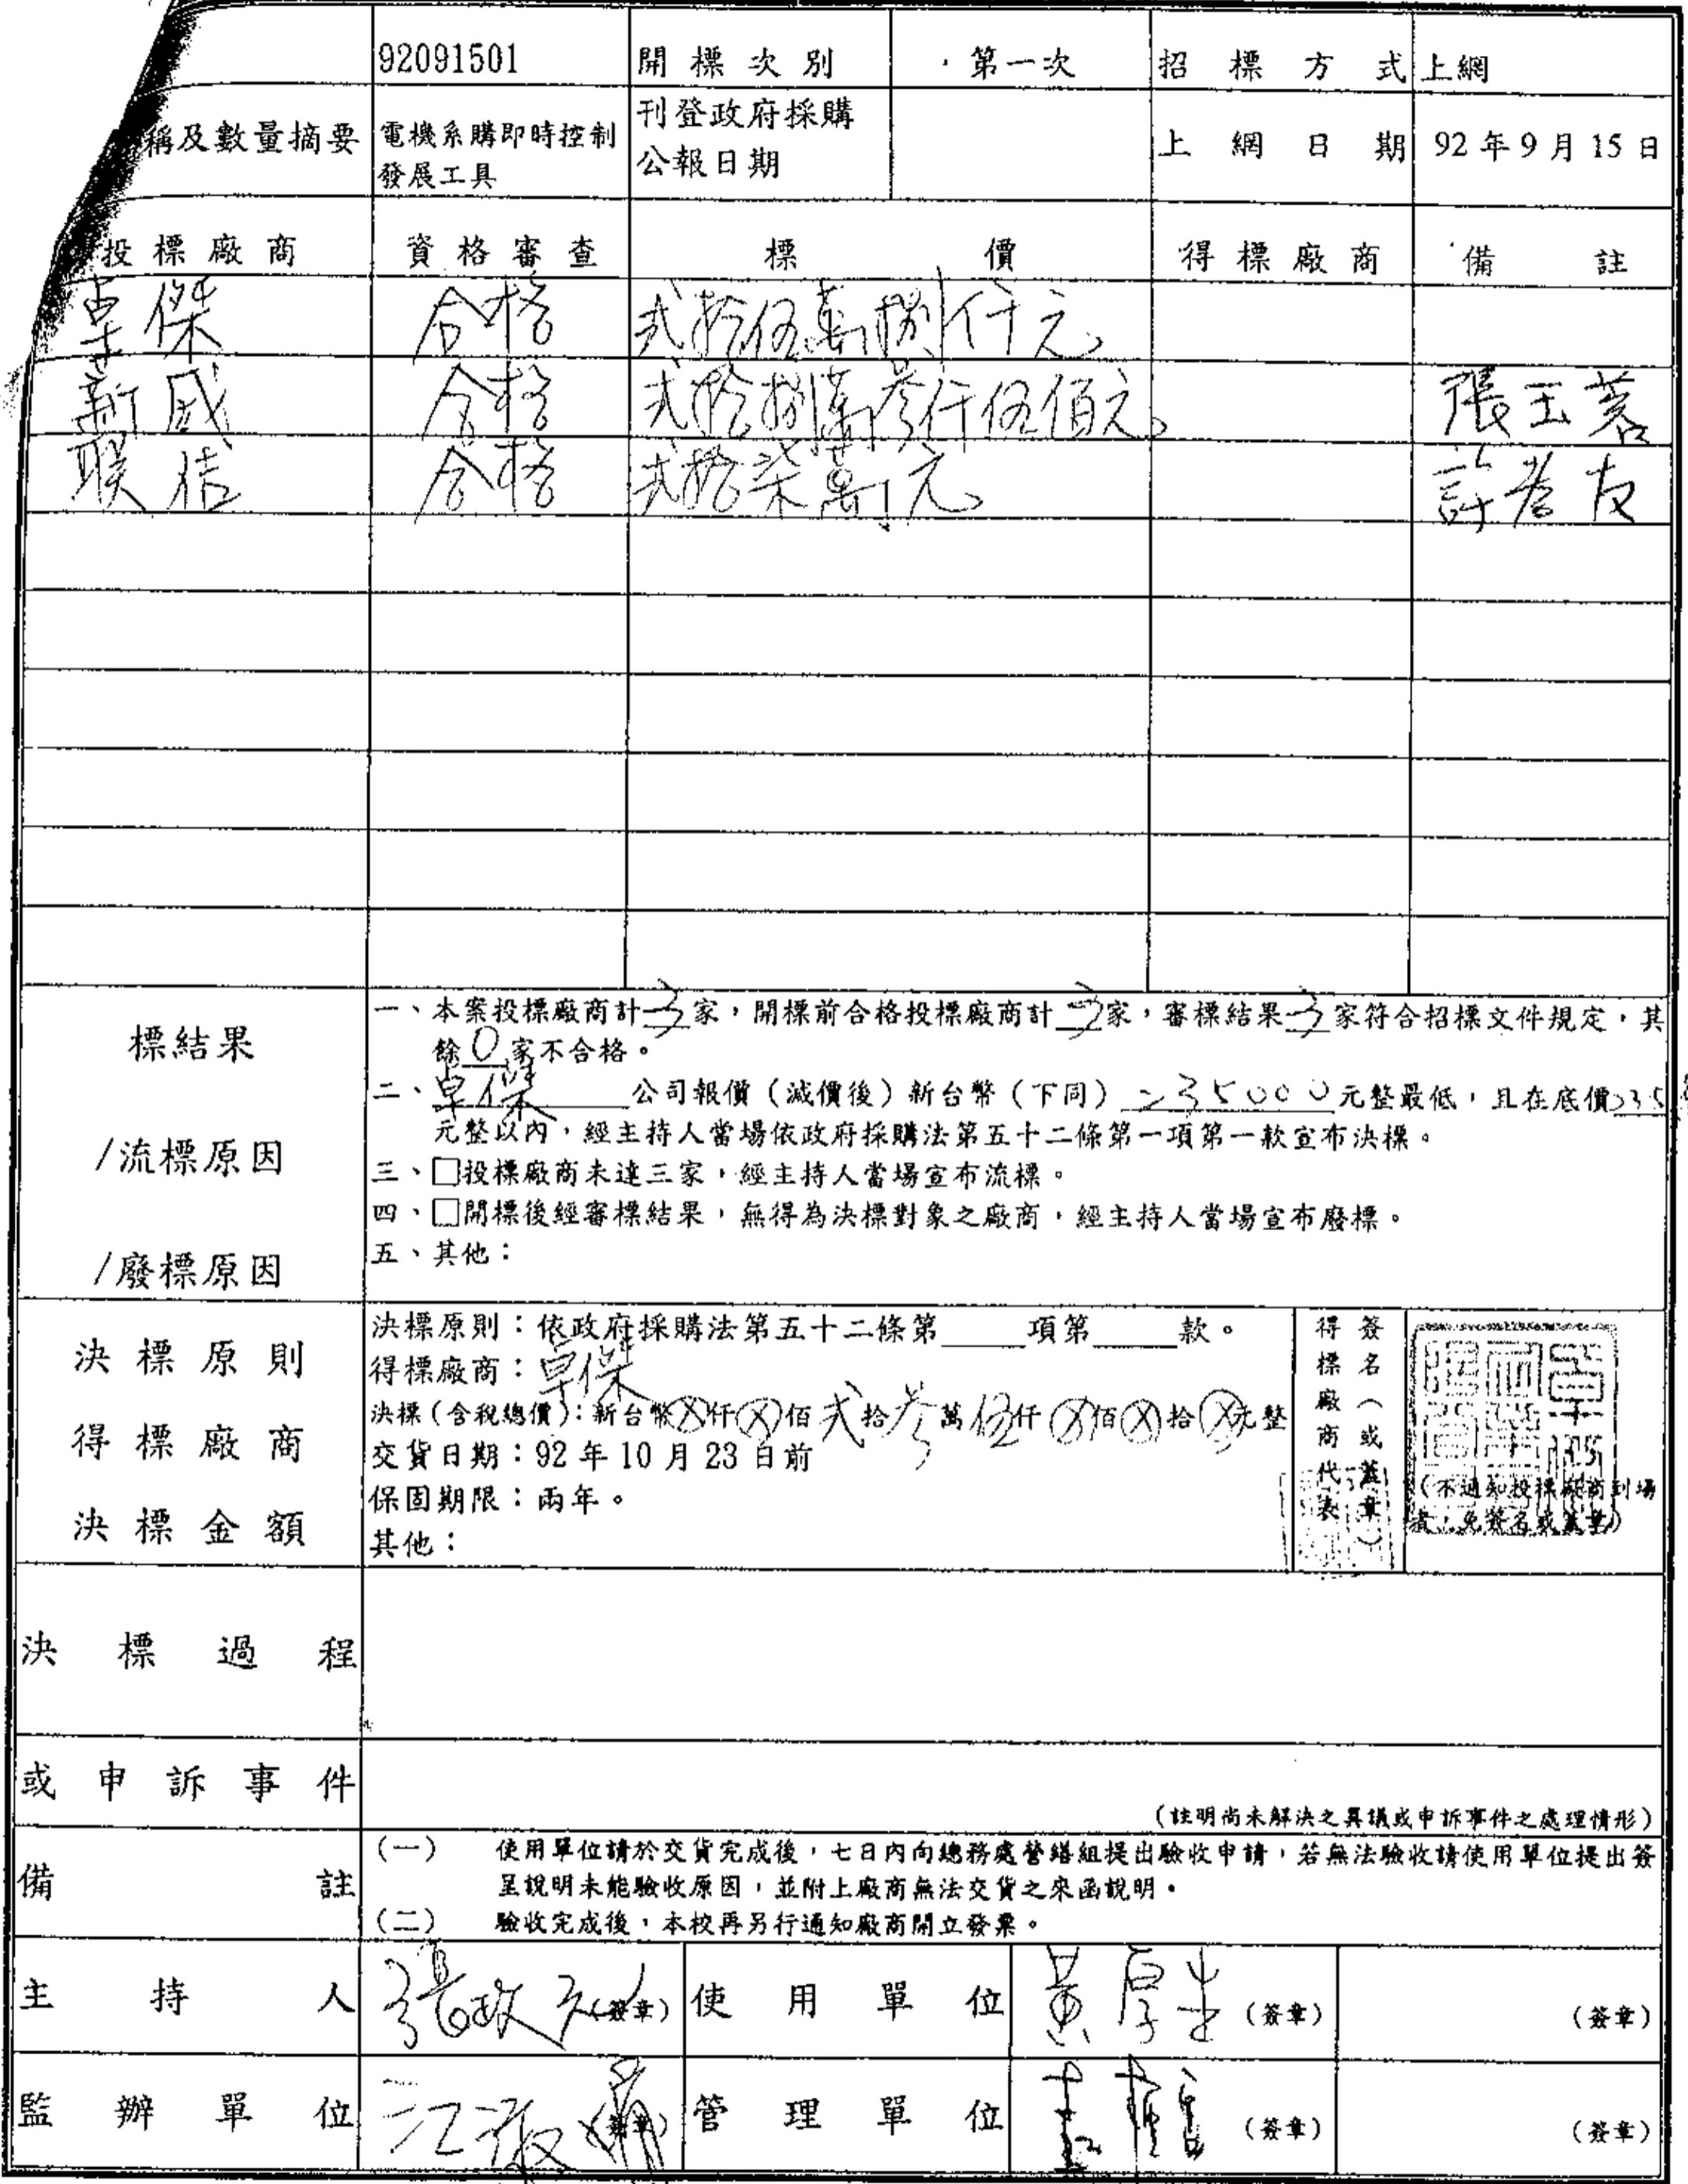 92091501 開標次別 第一次 招標方式 上網
稱及數量摘要 電機系購即時控制發展工具 刊登政府採購公報日期 上網日期 92年9月15日
投標廠商 資格審查 標價 得標廠商 備註
卓傑 合格 弍拾伍萬捌仟元
新威 合格 弍拾捌萬叁仟伍佰元 張玉
聯佶 合格 弍拾柒萬元 許
標結果
/流標原因
/廢標原因
一、本案投標廠商計3家,開標前合格投標廠商計3家,審標結果3家符合招標文件規定,其
餘0家不合格。
二、卓傑公司報價(減價後)新台幣(下同)235000元整最低,且在底價235
元整以內,經主持人當場依政府採購法第五十二條第一項第一款宣布決標。
三、□投標廠商未達三家,經主持人當場宣布流標。
四、□開標後經審標結果,無得為決標對象之廠商,經主持人當場宣布廢標。
五、其他:
決標原則
得標廠商
決標金額
決標原則:依政府採購法第五十二條第 項第 款。
得標廠商:卓傑
決標(含稅總價):新台幣Ⓧ仟Ⓧ佰弍拾叁萬伍仟Ⓧ佰Ⓧ拾Ⓧ元整
交貨日期:92年10月23日前
保固期限:兩年。
其他:
得標廠商代表
簽名(或蓋章)
(不通知投標廠商到場
者,免簽名或蓋章)
決標過程
或申訴事件
(註明尚未解決之異議或申訴事件之處理情形)
備註
(一) 使用單位請於交貨完成後,七日內向總務處營繕組提出驗收申請,若無法驗收請使用單位提出簽
呈說明未能驗收原因,並附上廠商無法交貨之來函說明。
(二) 驗收完成後,本校再另行通知廠商開立發票。
主持人 張政 (簽章) 使用單位 黃厚生 (簽章) (簽章)
監辦單位 江淑 (簽章) 管理單位 (簽章) (簽章)